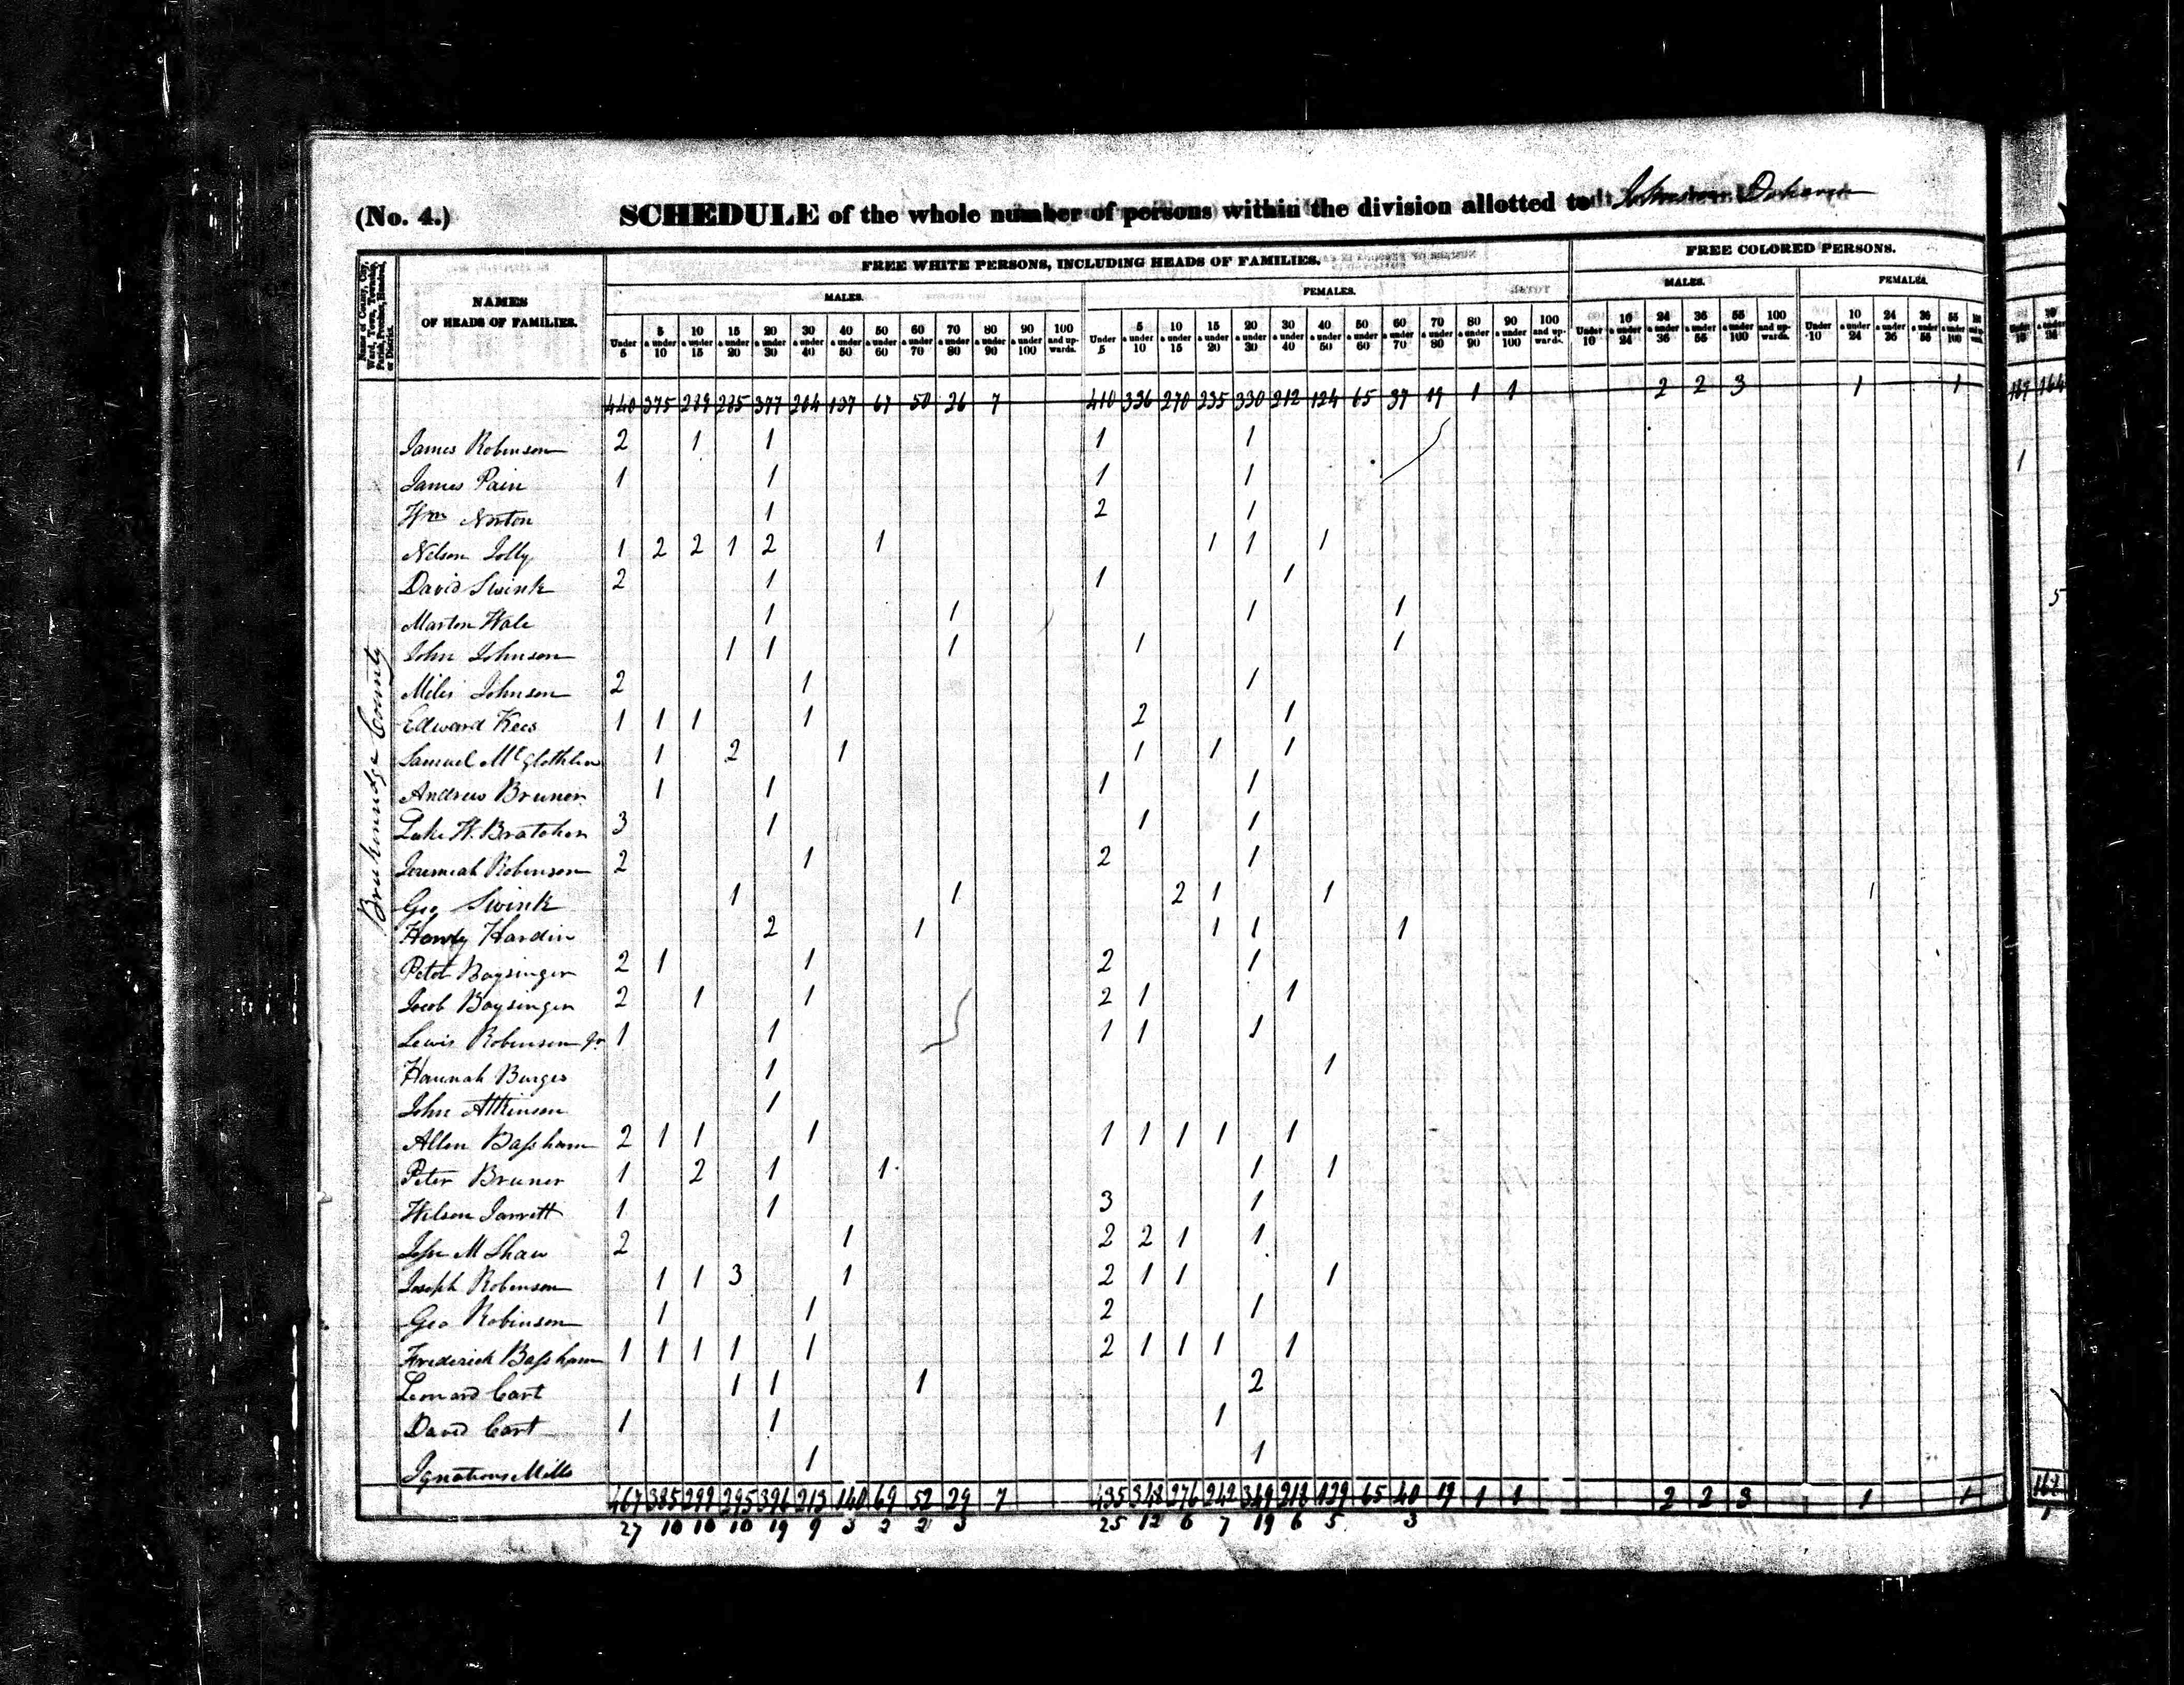 (No. 4.) SCHEDULE of the whole number of persons within the division allotted to
FREE WHITE PERSONS, INCLUDING HEADS OF FAMILIES. FREE COLORED PERSONS.
MALES. FEMALES. MALES. FEMALES.
Name of County, City, Ward, Town, Township, Parish, Precinct, Hundred, or District.
NAMES OF HEADS OF FAMILIES.
Under 5 5 & under 10 10 & under 15 15 & under 20 20 & under 30 30 & under 40 40 & under 50 50 & under 60 60 & under 70 70 & under 80 80 & under 90 90 & under 100 100 and upwards. Under 5 5 & under 10 10 & under 15 15 & under 20 20 & under 30 30 & under 40 40 & under 50 50 & under 60 60 & under 70 70 & under 80 80 & under 90 90 & under 100 100 and upwards. Under 10 10 & under 24 24 & under 36 36 & under 55 55 & under 100 100 and upwards. Under 10 10 & under 24 24 & under 36 36 & under 55 55 & under 100
440 375 289 285 377 204 137 67 50 26 7 410 336 270 235 330 212 124 65 37 19 1 1 2 2 3 1 1 167 164
Brakenridge County
James Robinson 2 1 1 1 1
James Pain 1 1 1 1 1
Wm Norton 1 2 1
Nelson Jolly 1 2 2 1 2 1 1 1 1
David Swink 2 1 1 1
Marton Hale 1 1 1 1 5
John Johnson 1 1 1 1 1
Miles Johnson 2 1 1
Edward Kees 1 1 1 1 2 1
Samuel McGlothlin 1 2 1 1 1 1
Andrew Bruner 1 1 1 1
Luke H. Bratcher 3 1 1 1
Jeremiah Robinson 2 1 2 1
Geo Swink 1 1 2 1 1 1
Hardin 2 1 1 1 1
Peter Baysinger 2 1 1 2 1
Jacob Baysinger 2 1 1 2 1 1
Lewis Robinson Jr 1 1 1 1 1
Hannah Burges 1 1
John Atkinson 1
Allen Bassham 2 1 1 1 1 1 1 1 1
Peter Bruner 1 2 1 1 1 1
Wilson Jarrett 1 1 3 1
Jesse M Shaw 2 1 2 2 1 1
Joseph Robinson 1 1 3 1 2 1 1 1
Geo Robinson 1 1 2 1
Frederick Bassham 1 1 1 1 1 2 1 1 1 1
Leonard Cart 1 1 1 2
David Cart 1 1 1
Ignatious Mills 1 1
467 385 299 295 396 213 140 69 52 29 7 435 348 276 242 349 218 129 65 40 19 1 1 2 2 3 1 1
27 10 10 10 19 9 3 2 2 3 25 12 6 7 19 6 5 3